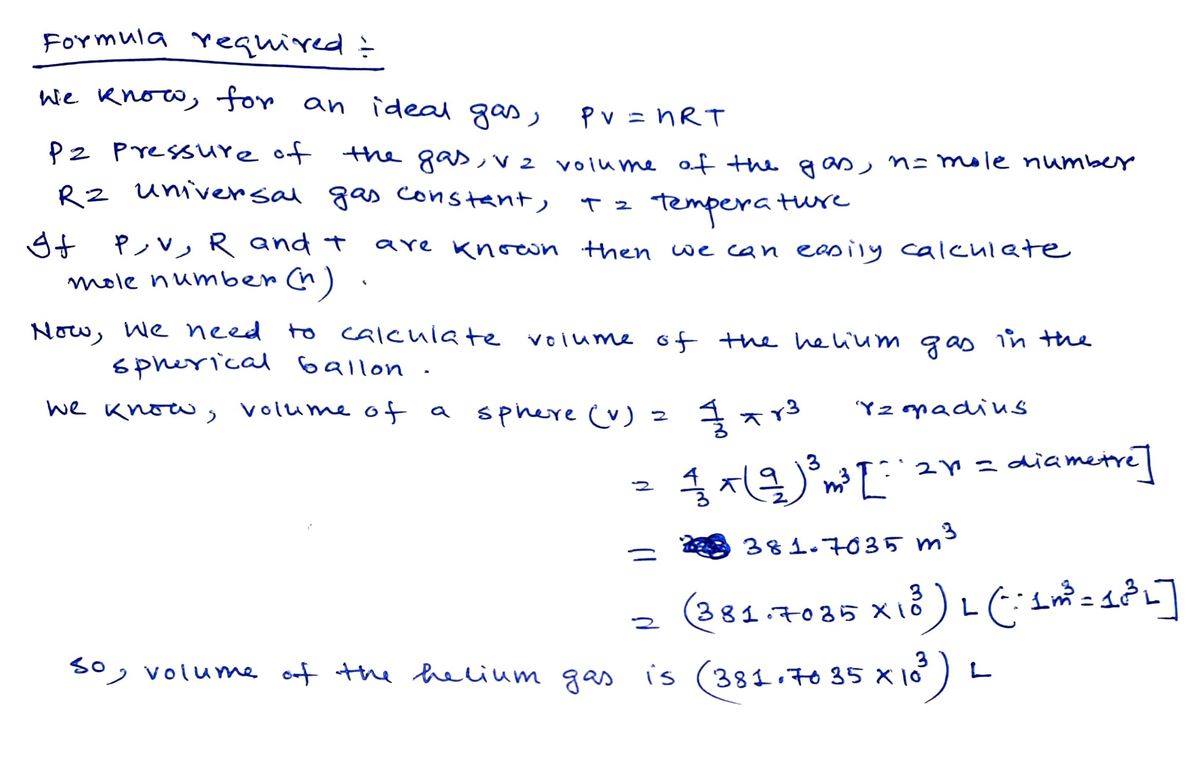 Formula required ÷
We know, for an ideal gas, PV = nRT
P = Pressure of the gas, V = volume of the gas, n = mole number
R = universal gas constant, T = temperature
If P, V, R and T are known then we can easily calculate
mole number (n) .
Now, We need to calculate volume of the helium gas in the
spherical ballon .
We know, volume of a sphere (V) = 4/3 π r³ r = radius
= 4/3 π (9/2)³ m³ [∵ 2r = diametre]
= 381.7035 m³
= (381.7035 × 10³) L (∵ 1m³ = 10³ L]
So, volume of the helium gas is (381.7035 × 10³) L